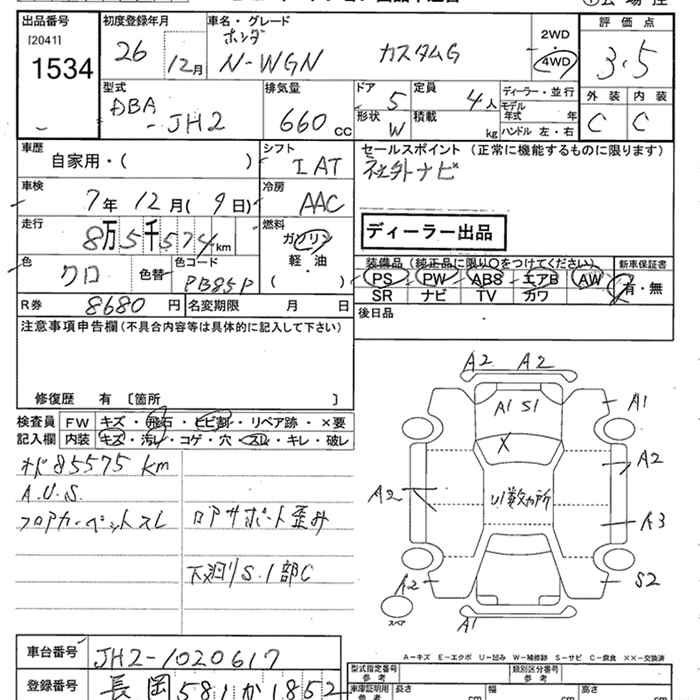 出品番号 初度登録年月 車名・グレード 評価点
[2041] ホンダ 2WD
1534 26 12月 N-WGN カスタムG 4WD 3.5
型式 排気量 ドア 定員 ディーラー・並行 外装 内装
DBA 5 4人 モデル年式 年 C C
-JH2 660cc 形状 W 積載 kg ハンドル 左・右
車歴 シフト セールスポイント (正常に機能するものに限ります)
自家用・( ) IAT 社外ナビ
車検 冷房
7年 12月 (9日) AAC
走行 燃料 ディーラー出品
8万5千574km ガソリン
軽・油
色 色替 色コード ( ) 装備品 (純正品に限り○をつけてください) 新車保証書
クロ PB85P PS PW ABS エアB AW 有・無
R券 8680円 名変期限 月 日 SR ナビ TV カワ
注意事項申告欄(不具合内容等は具体的に記入して下さい) 後日品
修復歴 有 〔箇所 〕
検査員 FW キズ・飛石・ヒビ割・リペア跡・×要
記入欄 内装 キズ・汚レ・コゲ・穴・スレ・キレ・破レ
オド85575km
A.U.S.
フロアカーペットスレ ロアサポート歪み
下廻りS.1部C
A2 A2
A1 S1 A1
X A2
A2 U1数カ所
A3
A2 S2
スペア A1
A-キズ E-エクボ U-凹み W-補修跡 S-サビ C-腐食 ××-交換済
車台番号 JH2-1020617
登録番号 長岡 581 か 1852
型式指定番号 参考 類別区分番号 参考
車庫証明用 参考 長さ cm 幅 cm 高さ cm